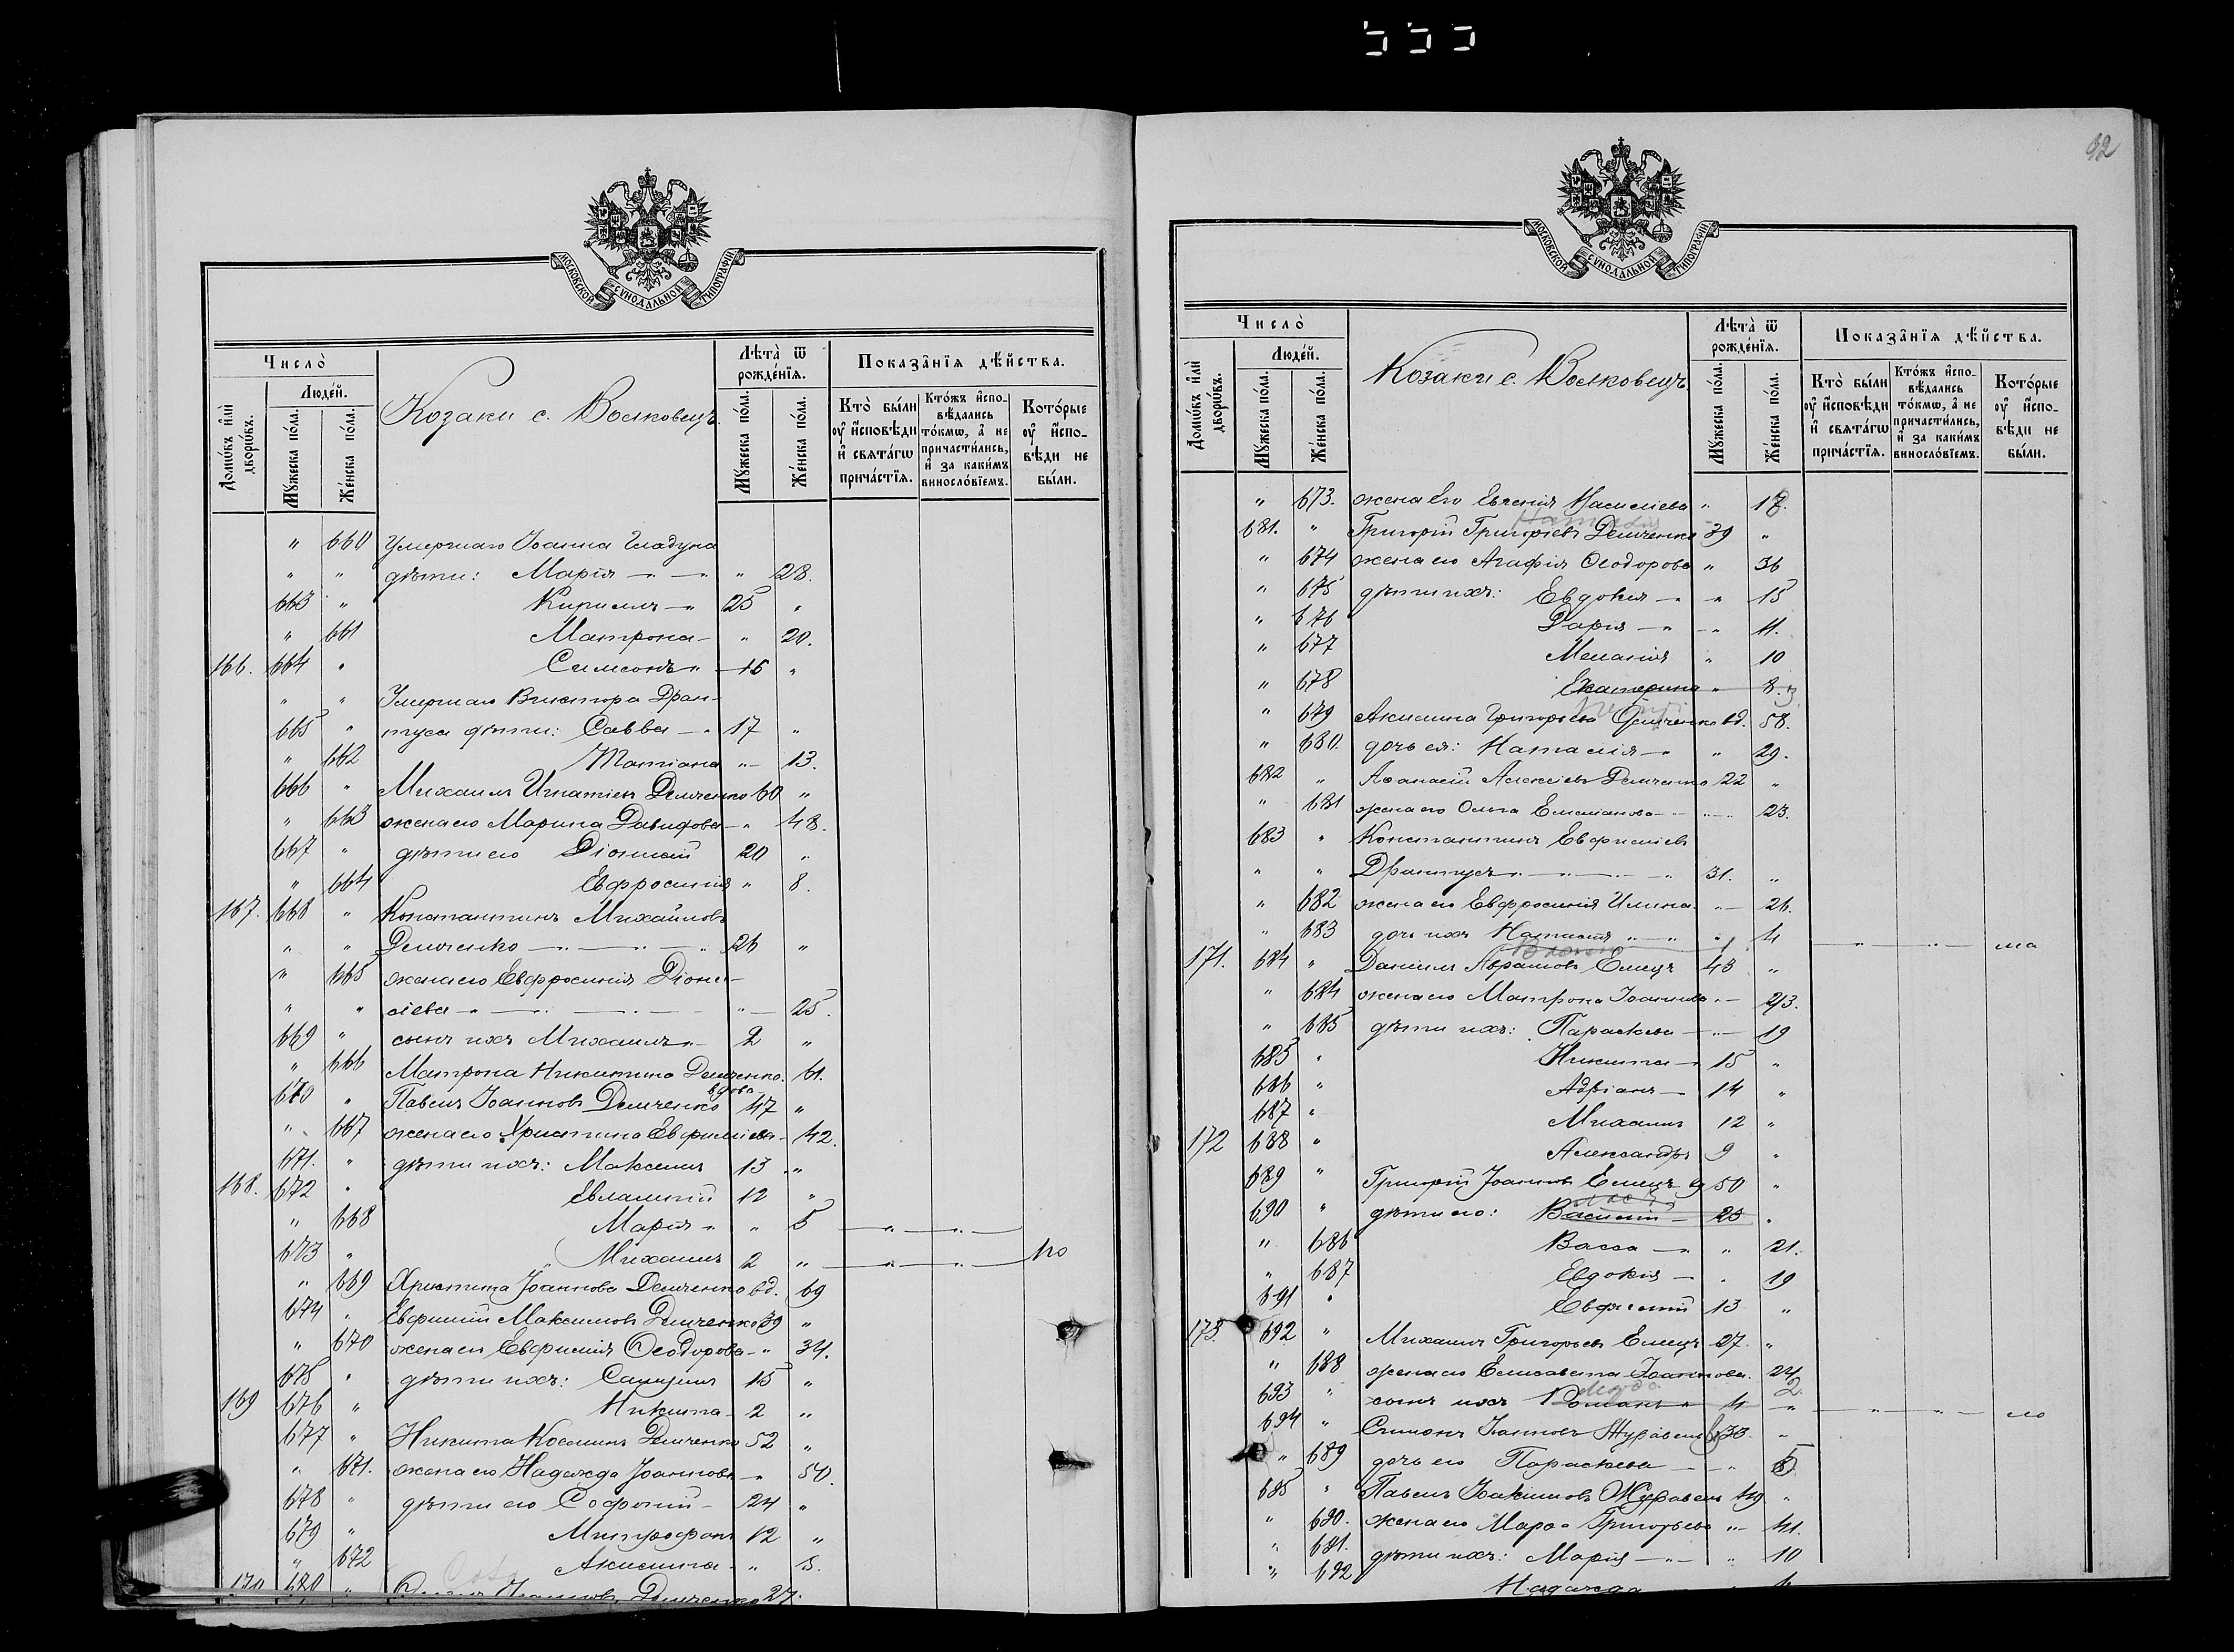 555
МОСКОВСКОЙ СУНОДАЛЬНОЙ ТИПОГРАФІИ
Число̀
Людéй.
Домѡ́въ и҆лѝ дворѡ́въ.
Мꙋ́жеска по́ла.
Же́нска по́ла.
Козаки с. Волковецъ.
Лѣ́та ѿ рожде́нїѧ.
Мꙋ́жеска по́ла.
Же́нска по́ла.
Показа̑нїѧ дѣ́йства.
Кто̀ бы́ли ᲂу҆ и҆сповѣ́ди и҆ свѧта́гѡ прича́стїѧ.
Кто́жъ и҆спо-вѣ́дались то́кмѡ, а҆ не причасти́лись, и҆ за каки́мъ виносло́вїемъ.
Кото́рые ᲂу҆ и҆спо-вѣ́ди не бы́ли.
" 660 Умершаго Іоанна Гладуна
" " дѣти: Марія " 28.
663 " Кириллъ 25 "
" 661 Матрона " 20.
166. 664 " Симеонъ 16 "
" " Умершаго Виктора Дран-
665 " туса дѣти: Савва 17 "
" 662 Татіана " 13.
666 " Михаилъ Игнатіевъ Демченко 60 "
" 663 жена его Марина Давидова " 48.
667 " дѣти его Діонисій 20 "
" 664 Евфросинія " 8.
167. 668 " Константинъ Михайловъ
" " Демченко 26 "
" 665 жена его Евфросинія Діони-
" " сіева " 25.
669 " сынъ ихъ Михаилъ 2 "
" 666 Матрона Никитина Демченко вдова 61.
670 " Павелъ Іоанновъ Демченко 47 "
" 667 жена его Христина Евфиміева 42.
671. " дѣти ихъ: Максимъ 13 "
168. 672 " Евлампій 12 "
" 668 Марія " 5
673 " Михаилъ 2 " по
" 669 Христина Іоаннова Демченко вд. 69
674 " Евфимій Максимовъ Демченко 39 "
" 670 жена его Евфимія Ѳеодорова " 34.
675 " дѣти ихъ: Самуилъ 15 "
169 676 " Никита 2 "
677 " Никита Косминъ Демченко 52 "
" 671. жена его Надежда Іоаннова " 50.
678 " дѣти его Софоній 24 "
679 " Митрофанъ 12 "
" 672 Акилина " 5.
170 680 " Іоанновъ Демченко 27.
МОСКОВСКОЙ СУНОДАЛЬНОЙ ТИПОГРАФІИ
Число̀
Людéй.
Домѡ́въ и҆лѝ дворѡ́въ.
Мꙋ́жеска по́ла.
Же́нска по́ла.
Козаки с. Волковецъ
Лѣ́та ѿ рожде́нїѧ.
Мꙋ́жеска по́ла.
Же́нска по́ла.
Показа̑нїѧ дѣ́йства.
Кто̀ бы́ли ᲂу҆ и҆сповѣ́ди и҆ свѧта́гѡ прича́стїѧ.
Кто́жъ и҆спо-вѣ́дались то́кмѡ, а҆ не причасти́лись, и҆ за каки́мъ виносло́вїемъ.
Кото́рые ᲂу҆ и҆спо-вѣ́ди не бы́ли.
" 673. жена его Евгенія Василіева "
681. " Григорій Григоріевъ Демченко 39 "
" 674 жена его Агафія Ѳеодорова " 36
" 675 дѣти ихъ: Евдокія " 15
" 676 Дарія " 11.
" 677 Меланія " 10
" 678 Екатерина " 8.
" 679 Акилина Григорьева Демченко вд. 58.
" 680. дочь ея: Наталія " 29.
682 " Аѳанасій Алексіевъ Демченко 22 "
" 681 жена его Ольга Емиліанова " 23.
683 " Константинъ Евфиміевъ
" " Драитусъ 31. "
" 682 жена его Евфросинія Ильина " 26.
" 683 дочь ихъ Наталія " 4 ма
171. 684 " Даніилъ Аврамовъ Емецъ 43 "
" 684 жена его Матрона Іоаннова " 43.
" 685 дѣти ихъ: Параскева " 19
685 " Никита 15 "
686 " Адріанъ 14 "
687 " Михаилъ 12 "
172 688 " Александръ 9 "
689 " Григорій Іоанновъ Емецъ 50 "
690 " дѣти его: Василій 23 "
" 686 Васса " 21.
" 687 Евдокія " 19
691 " Евфимій 13 "
173. 692 " Михаилъ Григорьевъ Емецъ 27. "
" 688 жена его Елисавета Іоаннова. 24
693 " сынъ ихъ Романъ 4 " ло
694 " Симонъ Іоанновъ Журавель 30 "
" 689 дочь его Параскева " 5
685 " Павелъ Іоакимовъ Журавель 49 "
" 690. жена его Марѳа Григорьева " 41.
" 691. дѣти ихъ: Марія " 10
" 692 Надежда